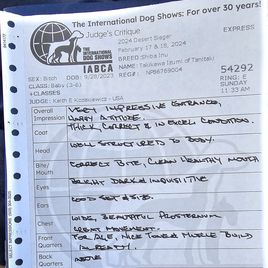 The International Dog Shows: For over 30 years!
Judge's Critique
EXPRESS
THE INTERNATIONAL DOG SHOWS
IABCA
2024 Desert Sieger
February 17 & 18, 2024
BREED: Shiba Inu
NAME: Takukawa Izumi of Tanitaki
SEX: Bitch DOB: 9/28/2023 REG#: NP86769004
54292
CLASS: Baby (3-6)
RING: E
+CLASSES
SUNDAY
JUDGE: Keith E Kozakiewicz - USA
11:33 AM
Overall Impression
Very impressive entrance,
Happy attitude.
Coat
Thick, correct & in excel condition.
Head
Well structured to body.
Mouth
Correct bite, clean healthy mouth
Eyes
Bright dark & inquisitive
Ears
Good set & size.
Chest
Wide, beautiful prosternum
Front Quarters
Great movement.
For age, nice tone & muscle build
Hind Quarters
already.
Back
Above